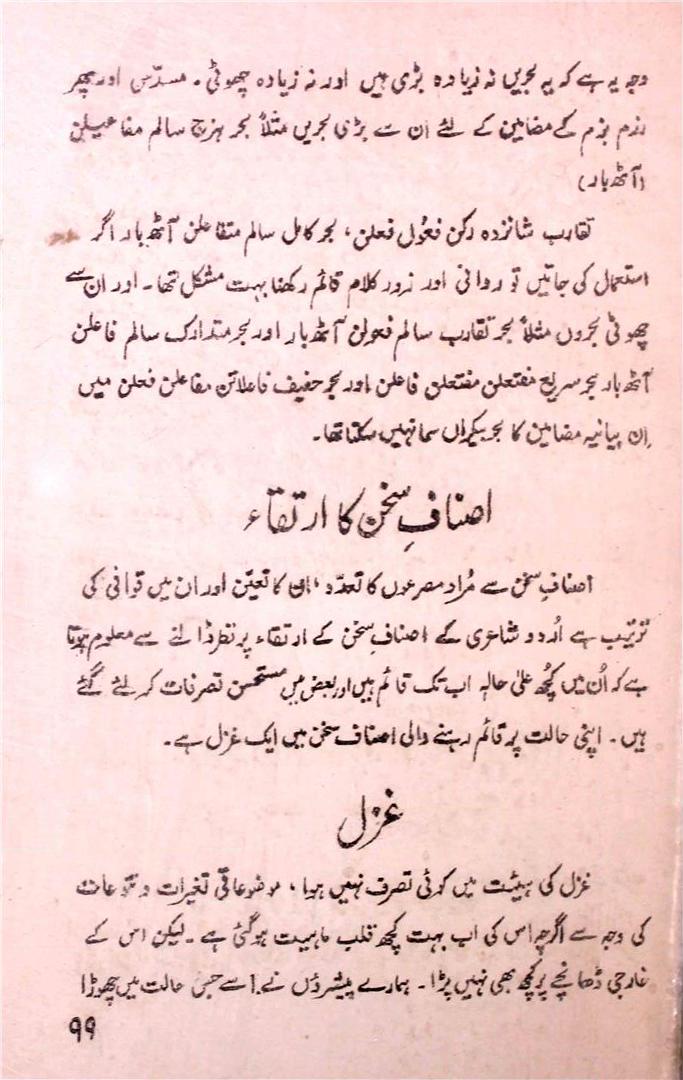 وجہ یہ ہے کہ یہ بحریں نہ زیادہ بڑی ہیں اور نہ زیادہ چھوٹی۔ مسدّس اور پھر
رزم بزم کے مضامین کے لئے ان سے بڑی بحریں مثلاً بحر ہزج سالم مفاعیلن
(آٹھ بار)
تقارب شانزدہ رکن فعُول فعلن، بحر کامل سالم متفاعلن آٹھ بار اگر
استعمال کی جاتیں تو روانی اور زور کلام قائم رکھنا بہت مشکل تھا۔ اور ان سے
چھوٹی بحروں مثلاً بحر تقارب سالم فعولن آٹھ بار اور بحر متدارک سالم فاعلن
آٹھ بار بحر سریع مفتعلن مفتعلن فاعلن اور بحر خفیف فاعلاتن مفاعلن فعلن میں
اِن بیانیہ مضامین کا بحر بیکراں سما نہیں سکتا تھا۔
اصنافِ سخن کا ارتقاء
اصنافِ سخن سے مُراد مصرعوں کا تعدّد، ان کا تعیّن اور ان میں قوافی کی
ترتیب ہے اُردو شاعری کے اصنافِ سخن کے ارتقاء پر نظر ڈالنے سے معلوم ہوتا
ہے کہ اُن میں کچُھ علیٰ حالہٖ اب تک قائم ہیں اور بعض میں مستحسن تصرفات کر لئے گئے
ہیں۔ اپنی حالت پر قائم رہنے والی اصناف سخن میں ایک غزل ہے۔
غزل
غزل کی ہیئت میں کوئی تصرف نہیں ہوا، موضوعاتی تغیرات و تنوعات
کی وجہ سے اگرچہ اس کی اب بہت کچھ قلب ماہیت ہوگئی ہے۔ لیکن اس کے
خارجی ڈھانچے پر کچھ بھی نہیں پڑا۔ ہمارے پیشروؤں نے اسے جس حالت میں چھوڑا
۹۹